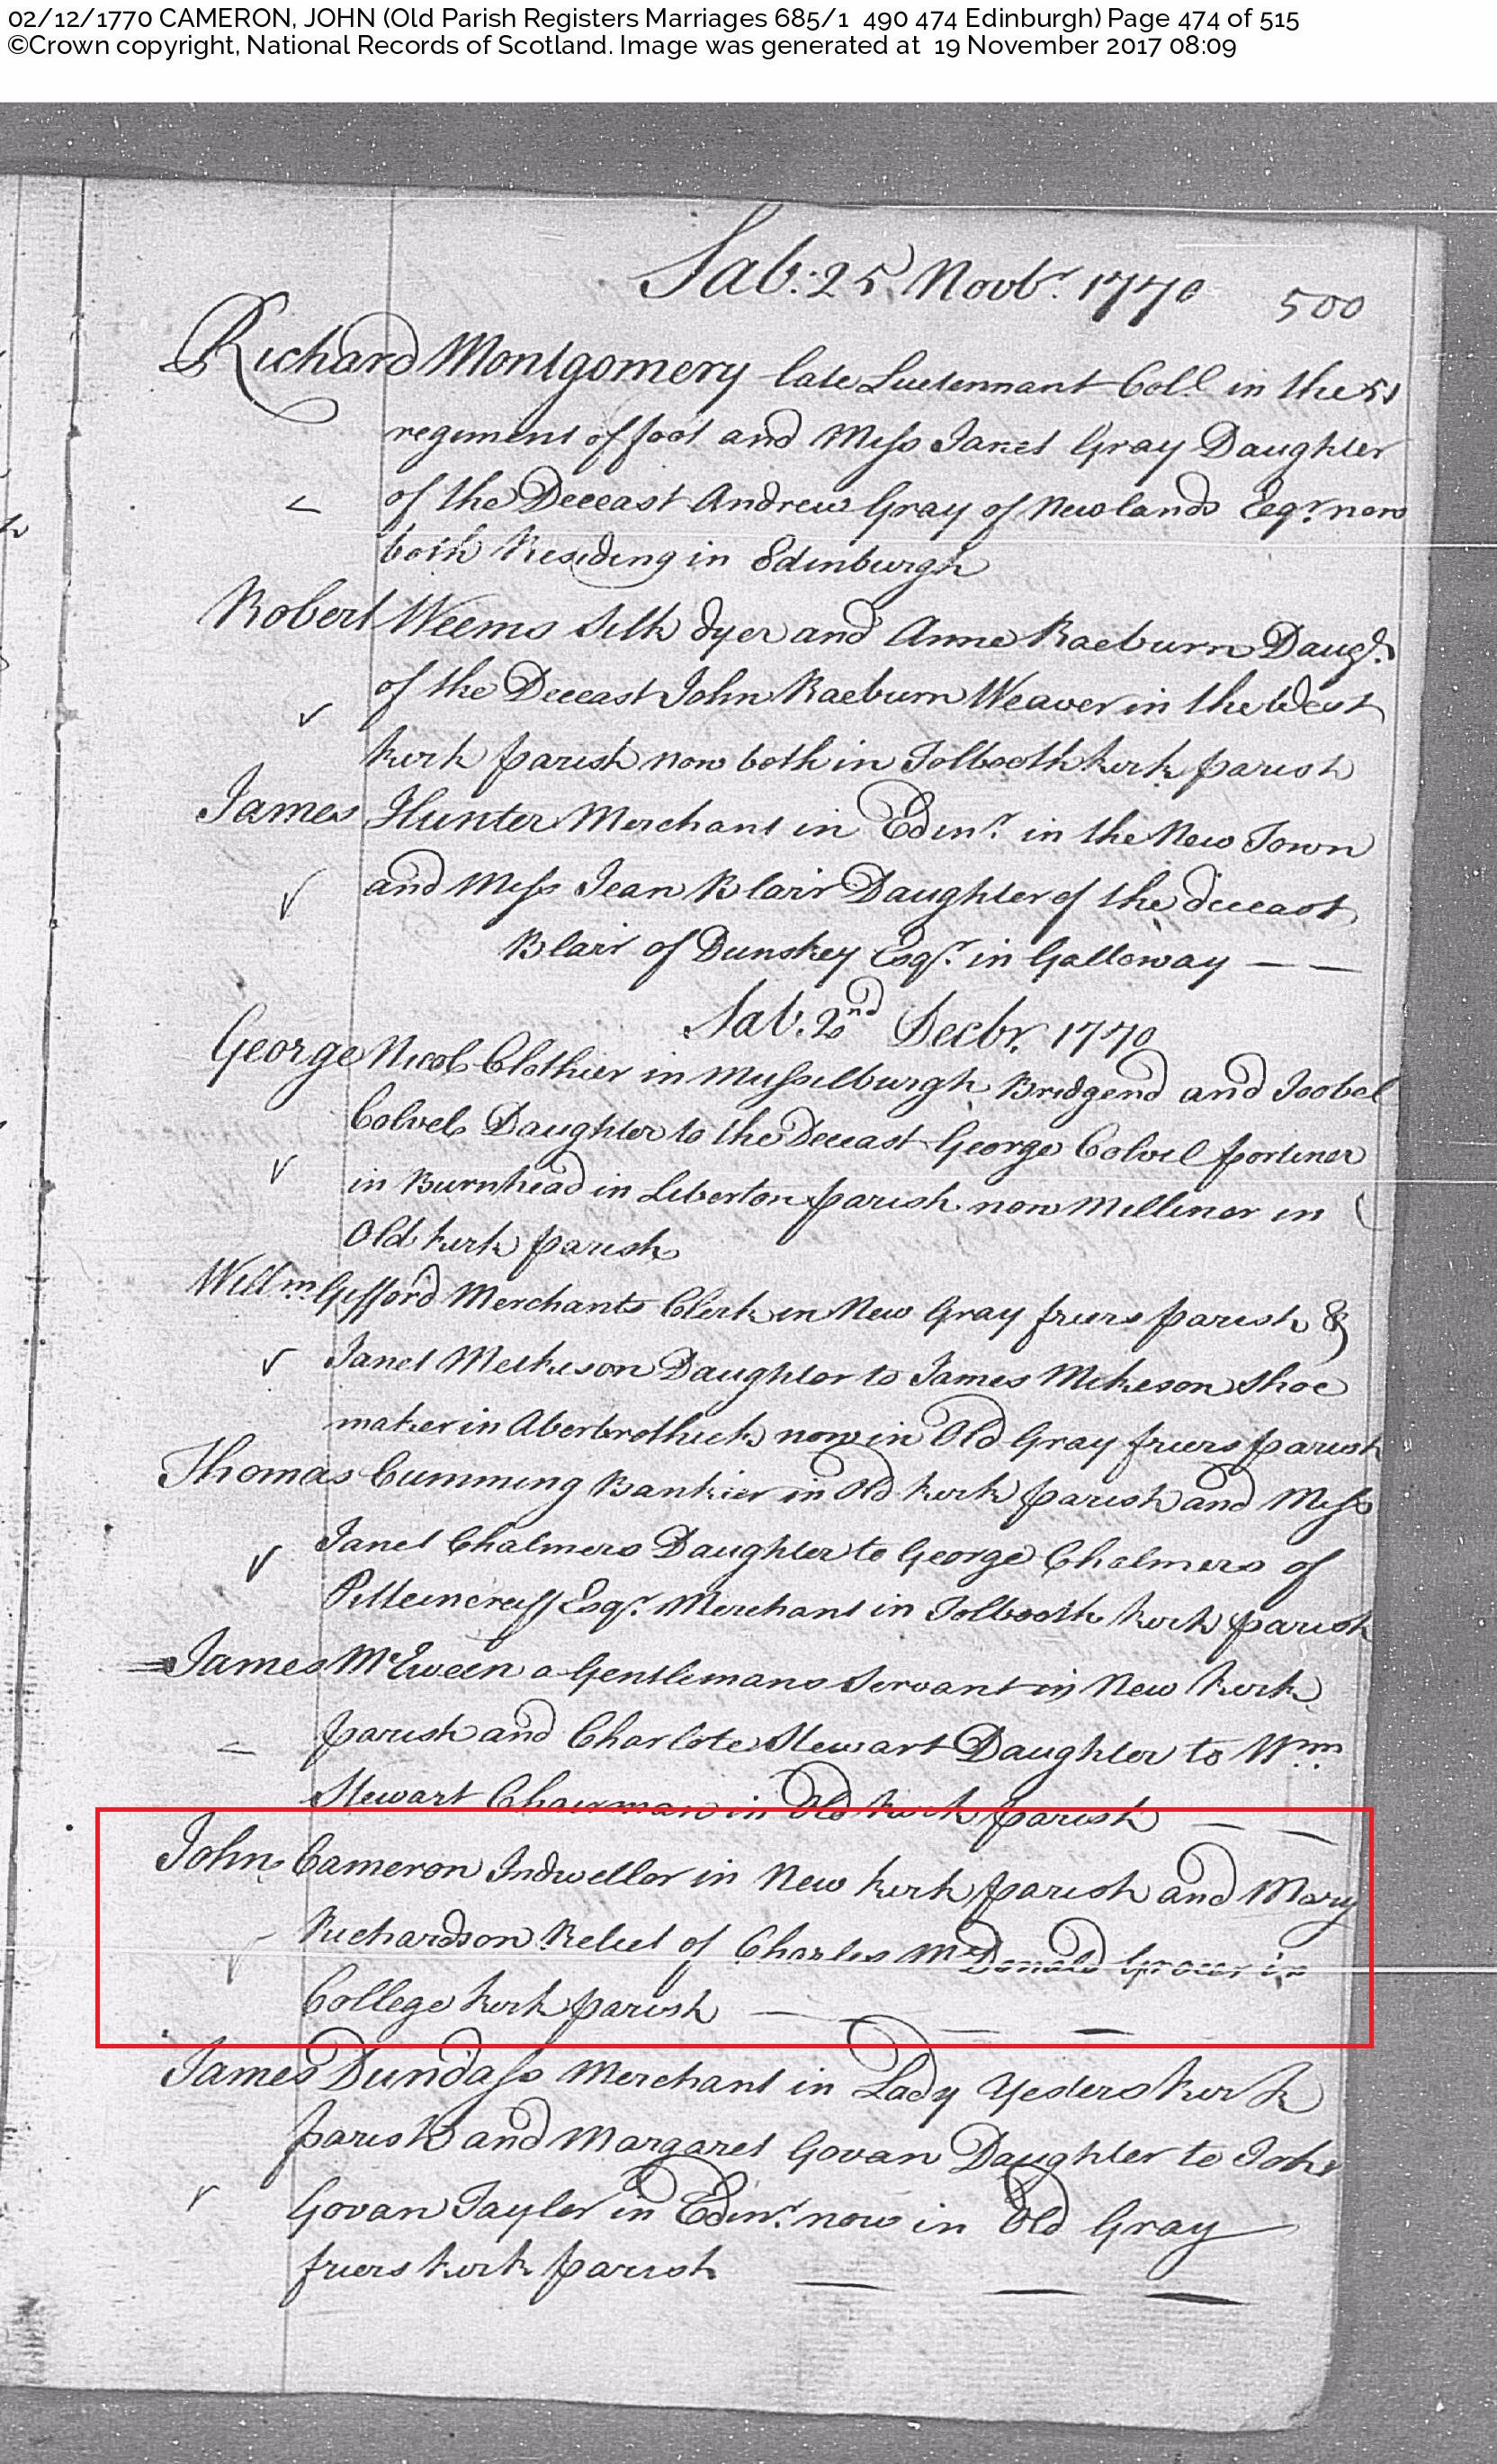 02/12/1770 CAMERON, JOHN (Old Parish Registers Marriages 685/1 490 474 Edinburgh) Page 474 of 515
©Crown copyright, National Records of Scotland. Image was generated at 19 November 2017 08:09
Sab: 25 Novbr. 1770 500
Richard Montgomery late Luetennant Coll. in the 51
regiment of foot and Miss Janet Gray Daughter
of the Deceast Andrew Gray of Newlands Esqr. now
both Residing in Edinburgh
Robert Weems Silk dyer and Anne Raeburn Daugr.
of the Deceast John Raeburn Weaver in the West
kirk parish now both in Tolbooth kirk parish
James Hunter Merchant in Edinr. in the New Town
and Miss Jean Blair Daughter of the deceast
Blair of Dunskey Esqr. in Galloway
Sab. 2nd Decbr. 1770
George Nicol Clothier in Musselburgh Bridgend and Isobel
Colvel Daughter to the Deceast George Colvel portiner
in Burnhead in Liberton parish now Milliner in
Old kirk parish
Willm. Gifford Merchants Clerk in New Gray friers parish &
Janet Meikeson Daughter to James Mikeson Shoe
maker in Aberbrothick now in Old Gray friers parish
Thomas Cumming Bankier in Old kirk parish and Miss
Janet Chalmers Daughter to George Chalmers of
Pitteincreiff Esqr. Merchant in Tolbooth kirk parish
James McEween a Gentlemans Servant in New kirk
parish and Charlote Stewart Daughter to Wm.
Stewart Chairman in Old kirk parish
John Cameron Indweller in New kirk parish and Mary
Richardson Relict of Charles McDonald Grocer in
College kirk parish
James Dundass Merchant in Lady Yesters kirk
parish and Margaret Govan Daughter to John
Govan Taylor in Edinr. now in Old Gray
friers kirk parish